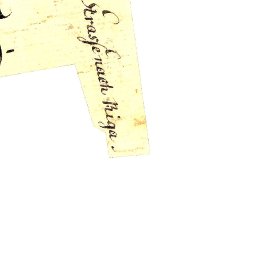 Strasse nach Riga.